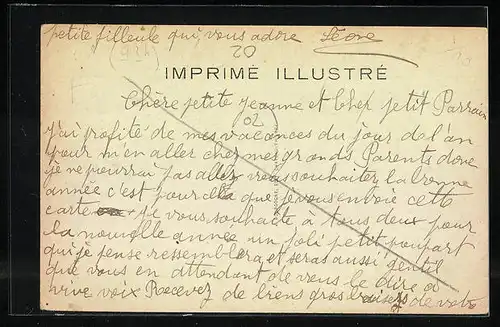 petite filleule qui vous adore Léone
20
IMPRIMÉ ILLUSTRÉ
Chère petite Jeanne et Cher petit Parrain
02
j'ai profité de mes vacances du jour de l'an
pour m'en aller chez mes grands Parents donc
je ne pourrai pas aller vous souhaiter la bonne
année c'est pour cela que je vous envoie cette
carte je vous souhaite à tous deux pour
la nouvelle année un joli petit poupart
qui je pense ressemblera et seras aussi gentil
que vous en attendant de vous le dire a
vive voix Recevez de biens gros baisers de votre